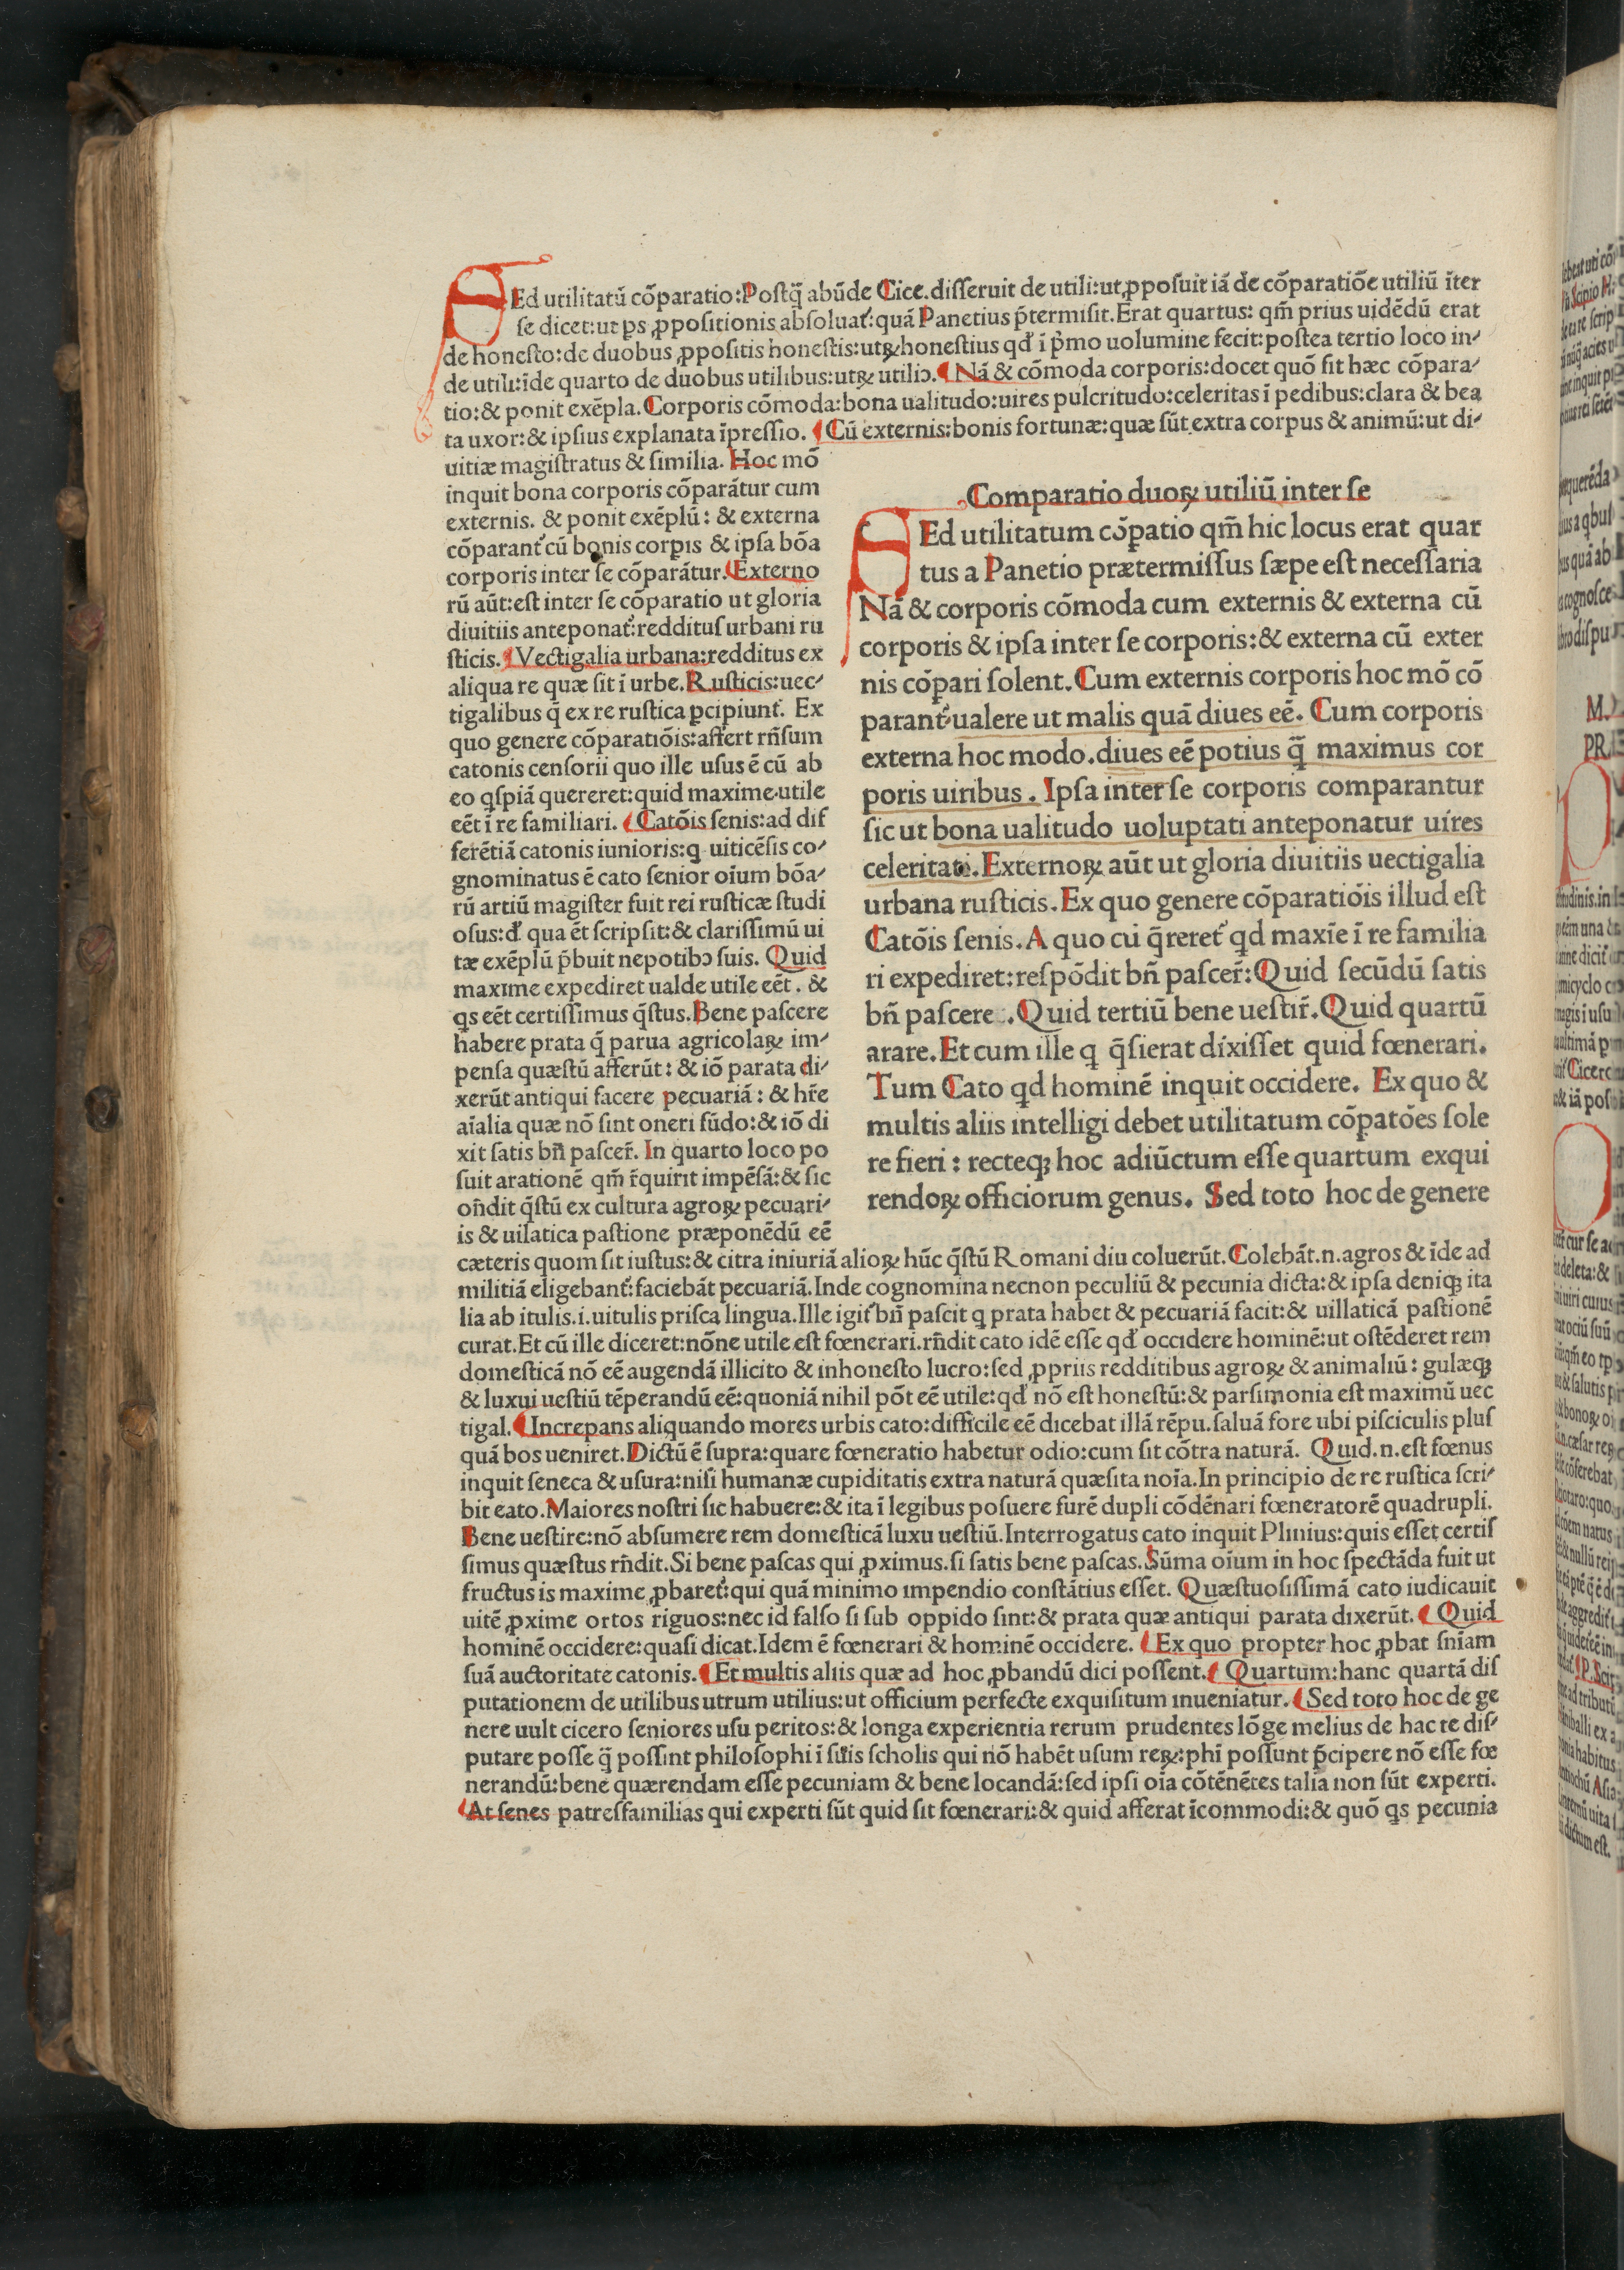 SEd utilitatū cōparatio:Postq̄ abūde Cice.disseruit de utili:ut ꝓposuit iā de cōparatiōe utiliū īter
se dicet:ut ps ꝓpositionis absoluat᷑:quā Panetius p̄termisit.Erat quartus: qm̄ prius uidēdū erat
de honesto:de duobus ꝓpositis honestis:utꝝ honestius qđ ī p̄mo uolumine fecit:postea tertio loco in⸗
de utili:īde quarto de duobus utilibus:utꝝ utiliꝰ.¶Nā & cōmoda corporis:docet quō sit hæc cōpara⸗
tio:& ponit exēpla.Corporis cōmoda:bona ualitudo:uires pulcritudo:celeritas ī pedibus:clara & bea
ta uxor:& ipsius explanata īpressio. ¶Cū externis:bonis fortunæ:quæ sūt extra corpus & animū:ut di⸗
uitiæ magistratus & similia. Hoc mō
inquit bona corporis cōparātur cum
externis. & ponit exēplū: & externa
cōparant᷑ cū bonis corꝑis & ipsa bōa
corporis inter se cōparātur.¶Externo
rū aūt:est inter se cōparatio ut gloria
diuitiis anteponat᷑:redditus urbani ru
sticis.¶Vectigalia urbana:redditus ex
aliqua re quæ sit ī urbe.Rusticis:uec⸗
tigalibus q̄ ex re rustica ꝑcipiunt᷑. Ex
quo genere cōparatiōis:affert rn̄sum
catonis censorii quo ille usus ē cū ab
eo qspiā quereret:quid maxime utile
eēt ī re familiari.¶Catōis senis:ad dif
ferētiā catonis iunioris:q uiticēsis co⸗
gnominatus ē cato senior oīum bōa⸗
rū artiū magister fuit rei rusticæ studi
osus:đ qua ēt scripsit:& clarissimū ui
tæ exēplū p̄buit nepotibꝰ suis. Quid
maxime expediret ualde utile eēt. &
qs eēt certissimus q̄stus.Bene pascere
habere prata q̄ parua agricolaꝝ im⸗
pensa quæstū afferūt: & iō parata di⸗
xerūt antiqui facere pecuariā: & hr̄e
aīalia quæ nō sint oneri fūdo:& iō di
xit satis bn̄ pascer̄. In quarto loco po
suit arationē qm̄ r̄quirit impēsā:& sic
on̄dit q̄stū ex cultura agroꝝ pecuari⸗
is & uilatica pastione præponēdū eē
Comparatio duoꝝ utiliū inter se
SEd utilitatum cōpatio qm̄ hic locus erat quar
tus a Panetio prætermissus sæpe est necessaria
Nā & corporis cōmoda cum externis & externa cū
corporis & ipsa inter se corporis:& externa cū exter
nis cōpari solent.Cum externis corporis hoc mō cō
parant᷑ ualere ut malis quā diues eē. Cum corporis
externa hoc modo.diues eē potius q̄ maximus cor
poris uiribus . Ipsa inter se corporis comparantur
sic ut bona ualitudo uoluptati anteponatur uires
celeritati.Externoꝝ aūt ut gloria diuitiis uectigalia
urbana rusticis.Ex quo genere cōparatiōis illud est
Catōis senis.A quo cū q̄reret᷑ qd maxīe ī re familia
ri expediret:respōdit bn̄ pascer̄:Quid secūdū satis
bn̄ pascere .Quid tertiū bene uestir̄.Quid quartū
arare.Et cum ille q q̄sierat dixisset quid fœnerari.
Tum Cato qd hominē inquit occidere. Ex quo &
multis aliis intelligi debet utilitatum cōpatōes sole
re fieri : recteqꝫ hoc adiūctum esse quartum exqui
rendoꝝ officiorum genus. Sed toto hoc de genere
cæteris quom sit iustus:& citra iniuriā alioꝝ hūc q̄stū Romani diu coluerūt.Colebāt.n.agros & īde ad
militiā eligebant᷑:faciebāt pecuariā.Inde cognomina necnon peculiū & pecunia dicta:& ipsa deniqꝫ ita
lia ab itulis.i.uitulis prisca lingua.Ille igit᷑ bn̄ pascit q prata habet & pecuariā facit:& uillaticā pastionē
curat.Et cū ille diceret:nōne utile est fœnerari.rn̄dit cato idē esse qđ occidere hominē:ut ostēderet rem
domesticā nō eē augendā illicito & inhonesto lucro:sed ꝓpriis redditibus agroꝝ & animaliū: gulæqꝫ
& luxui uestiū tēperandū eē:quoniā nihil pōt eē utile:qđ nō est honestū:& parsimonia est maximū uec
tigal.¶Increpans aliquando mores urbis cato:difficile eē dicebat illā rēpu.saluā fore ubi pisciculis plus
quā bos ueniret.Dictū ē supra:quare fœneratio habetur odio:cum sit cōtra naturā. Quid.n.est fœnus
inquit seneca & usura:nisi humanæ cupiditatis extra naturā quæsita noīa.In principio de re rustica scri⸗
bit cato.Maiores nostri sic habuere:& ita ī legibus posuere furē dupli cōdēnari fœneratorē quadrupli.
Bene uestire:nō absumere rem domesticā luxu uestiū.Interrogatus cato inquit Plinius:quis esset certis
simus quæstus rn̄dit.Si bene pascas qui ꝓximus.si satis bene pascas.Sūma oīum in hoc spectāda fuit ut
fructus is maxime ꝓbaret᷑:qui quā minimo impendio constātius esset. Quæstuosissimā cato iudicauit
uitē ꝓxime ortos riguos:nec id falso si sub oppido sint:& prata quæ antiqui parata dixerūt.¶Quid
hominē occidere:quasi dicat.Idem ē fœnerari & hominē occidere. ¶Ex quo propter hoc ꝓbat sn̄iam
suā auctoritate catonis.¶Et multis aliis quæ ad hoc ꝓbandū dici possent.¶Quartum:hanc quartā dis
putationem de utilibus utrum utilius:ut officium perfecte exquisitum inueniatur.¶Sed toto hoc de ge
nere uult cicero seniores usu peritos:& longa experientia rerum prudentes lōge melius de hac re dis⸗
putare posse q̄ possint philosophi ī suis scholis qui nō habēt usum reꝝ:phi possunt p̄cipere nō esse fœ
nerandū:bene quærendam esse pecuniam & bene locandā:sed ipsi oīa cōtēnētes talia non sūt experti.
¶At senes patresfamilias qui experti sūt quid sit fœnerari:& quid afferat īcommodi:& quō qs pecunia